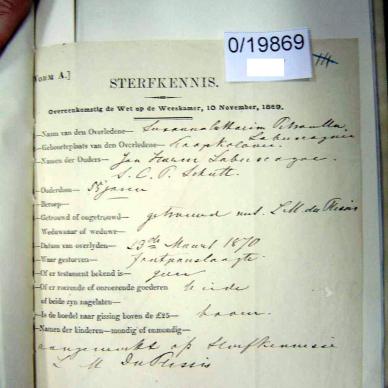 0/19869
[NORM A.]
STERFKENNIS.
Overeenkomstig de Wet op de Weeskamer, 10 November, 1869.
—Naam van den Overledene— Susanna Catharin Petronella
Labuscagne
—Geboorteplaats van den Overledene— Kaapkolonie
—Namen der Ouders— Jan Labuscagne
S. C. P. Schutte
—Ouderdom— jaren
—Beroep—
—Getrouwd of ongetrouwd— getrouwd met L M du Plessis
Weduwnaar of weduwe—
—Datum van overlyden— 23de Maart 1870
—Waar gestorven—
—Of er testament bekend is— geen
—Of er roerende of onroerende goederen beide
of beide zyn nagelaten—
—Is de boedel naar gissing boven de £25— boven
—Namen der kinderen—mondig of onmondig—
aangemerkt op Sterfkennisse
L M Du Plessis